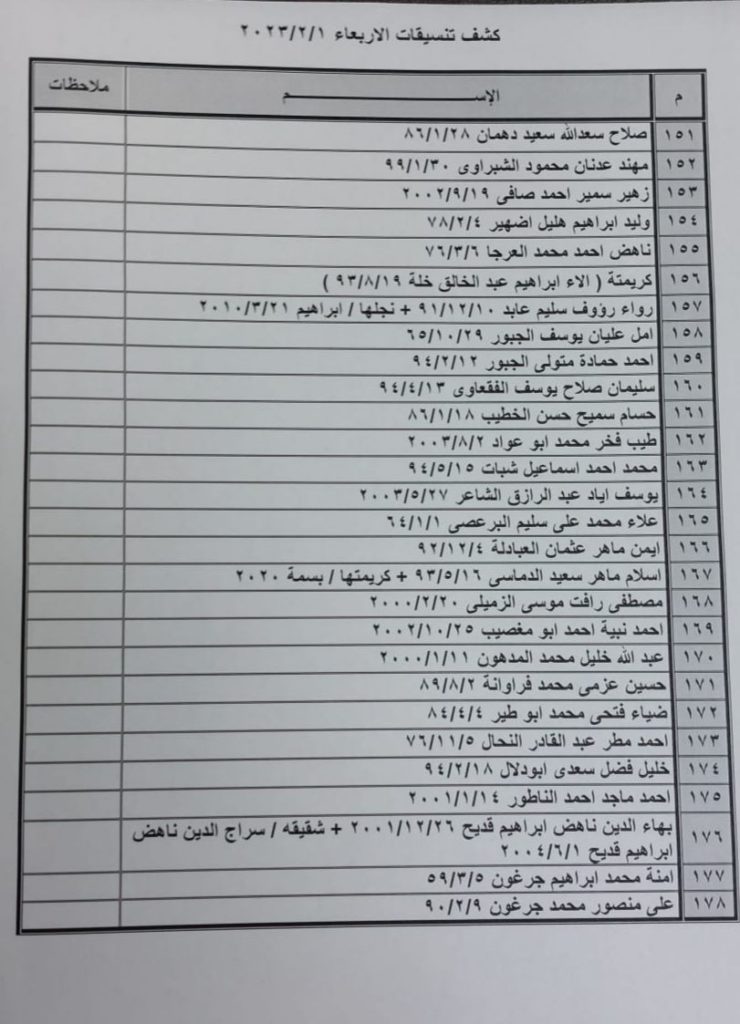 كشف تنسيقات الاربعاء ٢٠٢٣/٢/١
م الإســـــم ملاحظات
١٥١ صلاح سعدالله سعيد دهمان ٨٦/١/٢٨
١٥٢ مهند عدنان محمود الشبراوى ٩٩/١/٣٠
١٥٣ زهير سمير احمد صافى ٢٠٠٢/٩/١٩
١٥٤ وليد ابراهيم هليل اضهير ٧٨/٢/٤
١٥٥ ناهض احمد محمد العرجا ٧٦/٣/٦
١٥٦ كريمتة ( الاء ابراهيم عبد الخالق خلة ٩٣/٨/١٩ )
١٥٧ رواء رؤوف سليم عابد ٩١/١٢/١٠ + نجلها / ابراهيم ٢٠١٠/٣/٢١
١٥٨ امل عليان يوسف الجبور ٦٥/١٠/٢٩
١٥٩ احمد حمادة متولى الجبور ٩٤/٢/١٢
١٦٠ سليمان صلاح يوسف الفقعاوى ٩٤/٤/١٣
١٦١ حسام سميح حسن الخطيب ٨٦/١/١٨
١٦٢ طيب فخر محمد ابو عواد ٢٠٠٣/٨/٢
١٦٣ محمد احمد اسماعيل شبات ٩٤/٥/١٥
١٦٤ يوسف اياد عبد الرازق الشاعر ٢٠٠٣/٥/٢٧
١٦٥ علاء محمد على سليم البرعصى ٦٤/١/١
١٦٦ ايمن ماهر عثمان العبادلة ٩٢/١٢/٤
١٦٧ اسلام ماهر سعيد الدماسى ٩٣/٥/١٦ + كريمتها / بسمة ٢٠٢٠
١٦٨ مصطفى رافت موسى الزميلى ٢٠٠٠/٢/٢٠
١٦٩ احمد نبية احمد ابو مغصيب ٢٠٠٢/١٠/٢٥
١٧٠ عبد الله خليل محمد المدهون ٢٠٠٠/١/١١
١٧١ حسين عزمى محمد فراوانة ٨٩/٨/٢
١٧٢ ضياء فتحى محمد ابو طير ٨٤/٤/٤
١٧٣ احمد مطر عبد القادر النحال ٧٦/١١/٥
١٧٤ خليل فضل سعدى ابودلال ٩٤/٢/١٨
١٧٥ احمد ماجد احمد الناطور ٢٠٠١/١/١٤
١٧٦ بهاء الدين ناهض ابراهيم قديح ٢٠٠١/١٢/٢٦ + شقيقه / سراج الدين ناهض
ابراهيم قديح ٢٠٠٤/٦/١
١٧٧ امنة محمد ابراهيم جرغون ٥٩/٣/٥
١٧٨ على منصور محمد جرغون ٩٠/٢/٩